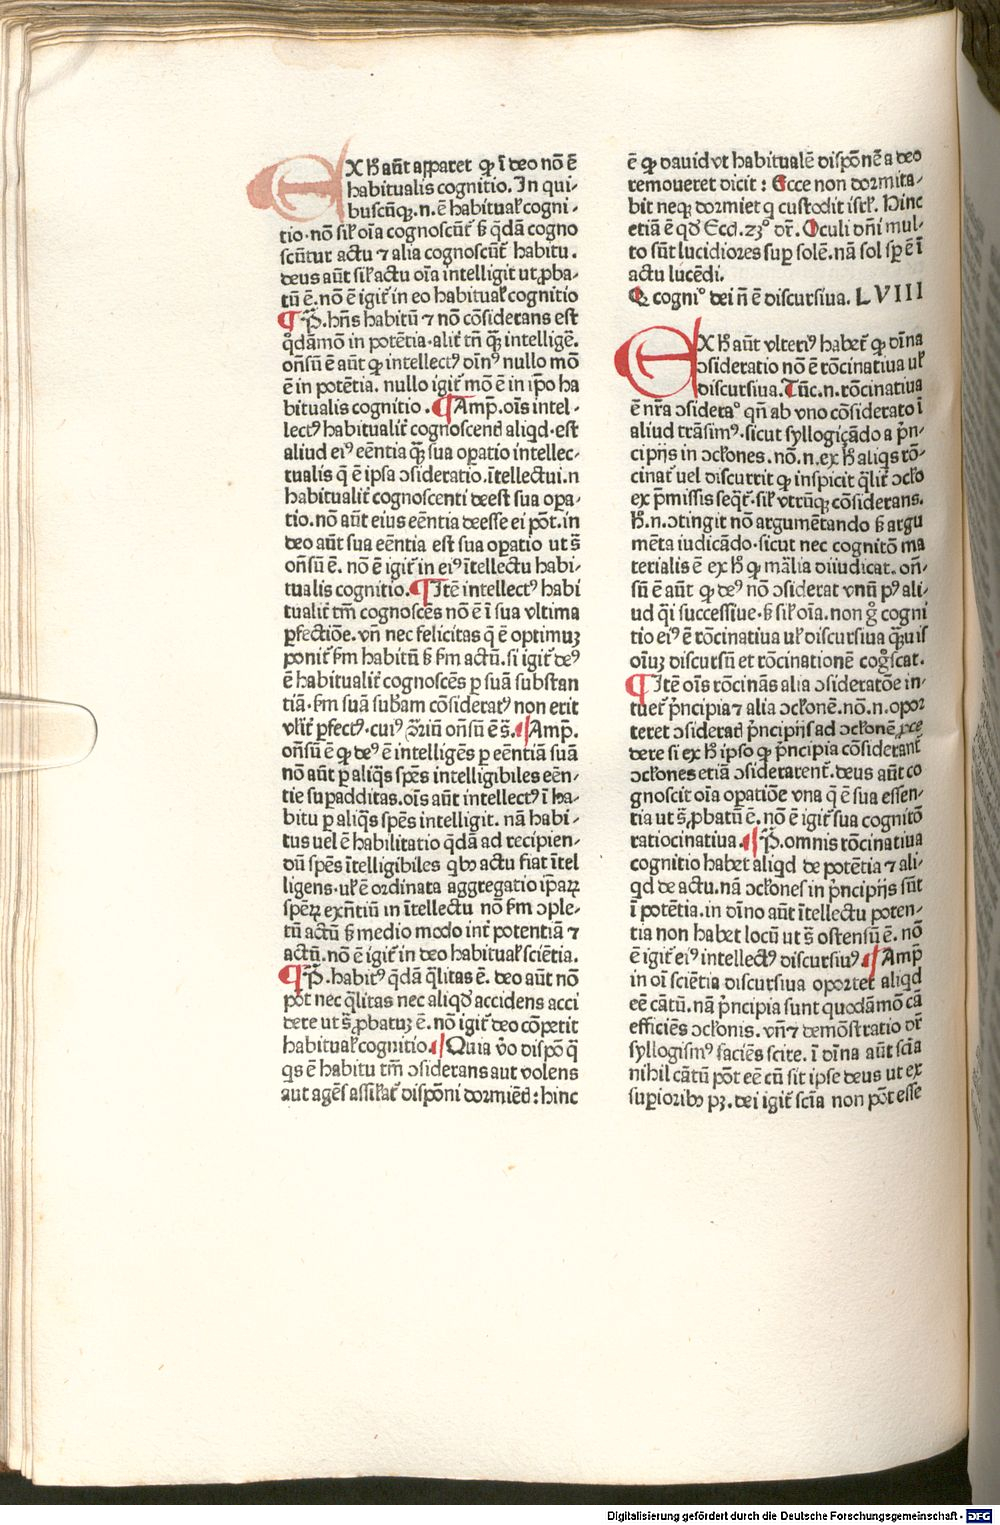 EX hͦ aūt apparet ꝙ ī deo nō ē
habitualis cognitio. In qui-
buscūqꝫ .n. ē habitualꝭ cogni-
tio. nō sil' oīa cognoscūt' sꝫ q̄dā cogno
scūtur actu ⁊ alia cognoscūt' habitu.
deus aūt sil' actu oīa intelligit ut ꝓba-
tū ē. nō ē igit' in eo habitual' cognitio
¶ P̄. hn̄s habitū ⁊ nō cōsiderans est
q̊dāmō in potētia. alit' tn̄ qꝫ intelligē.
on̄sū ē aūt ꝙ intellectꝰ diīnꝰ nullo mō
ē in potētia. nullo igit' mō ē in ip̄o ha
bitualis cognitio. ¶ Amp̄. oīs intel-
lectꝰ habitualit' cognoscend aliqd. est
aliud eiꝰ eēntia qꝫ sua oꝑatio intellec-
tualis q̄ ē ipsa ↄsideratio. ītellectui .n
habitualit' cognoscenti deest sua oꝑa-
tio. nō aūt eius eēntia deesse ei pōt. in
deo aūt sua eēntia est sua oꝑatio ut s̄
on̄sū ē. nō ē igit' in eiꝰ ītellectu habi-
tualis cognitio. ¶ Itē intellectꝰ habi
tualit' tm̄ cognoscēs nō ē ī sua vltima
ꝑfectiōe. vn̄ nec felicitas q̄ ē optimuꝫ
ponit' ẜm habitū sꝫ ẜm actū. si igit' deꝰ
ē habitualit' cognoscēs ꝑ suā substan
tiā. ẜm suā sub̄am cōsideratꝰ non erit
vl'it' ꝑfectꝰ. cuiꝰ ꝯ̄riū on̄sū ē s̄. ¶ Amp̄.
on̄sū ē ꝙ deꝰ ē intelligēs ꝑ eēntiā suā
nō aūt ꝑ aliq̄s spēs intelligibiles eēn-
tie suꝑadditas. oīs aūt intellectꝰ ī ha-
bitu ꝑ aliq̄s spēs intelligit. nā habi-
tus uel ē habilitatio q̄dā ad recipien-
dū spēs ītelligibiles qbꝫ actu fiat ītel
ligens. ul' ē ordinata aggregatio ip̄aꝝ
spēꝝ exn̄tiū in ītellectu nō ẜm ↄple-
tū actū sꝫ medio modo int' potentiā ⁊
actū. nō ē igit' in deo habitual' sciētia.
¶ P̄. habitꝰ q̄dā q̄litas ē. deo aūt nō
pōt nec q̄litas nec aliqd accidens acci
dere ut s̄ ꝓbatuꝫ ē. nō igit' deo cōpetit
habitual' cognitio. ¶ Quia v̊o dispō q̄
qs ē habitu tm̄ ↄsiderans aut volens
aut agēs assil'at' dispōni dormiēd: hinc
ē ꝙ dauid vt habitualē dispōnē a deo
remoueret dicit: Ecce non dormita-
bit neqꝫ dormiet q custodit isrl'. Hinc
etiā ē qd Eccl. 23º dr̄. Oculi dn̄i mul-
to sūt lucidiores suꝑ solē. nā sol sꝑ ē ī
actu lucēdi.
Q cogniº dei n̄ ē discursiua. LVIII
EX hͦ aūt vlteriꝰ habet' ꝙ diīna
ↄsideratio nō ē rōcinatiua ul'
discursiua. Tūc .n. rōcinatiua
ē nr̄a ↄsideraº qn̄ ab vno cōsiderato ī
aliud trāsimꝰ. sicut syllogiçādo a pn̄-
cipijs in ↄclōnes. nō .n. ex hͦ aliqs rō-
cinat' uel discurrit ꝙ inspicit q̄lit' ↄclo
ex p̄missis seq̄t'. sil' vtrūqꝫ cōsiderans.
hͦ .n. ↄtingit nō argumētando sꝫ argu
mēta iudicādo. sicut nec cognitō ma
terialis ē ex hͦ ꝙ mālia diiudicat. on̄-
sū ē aūt ꝙ deꝰ nō ↄsiderat vnū pꝰ ali-
ud q̄i successiue. sꝫ sil' oīa. non g̊ cogni
tio eiꝰ ē rōcinatiua ul' discursiua qꝫuis
oīuꝫ discursū et rōcinationē cog̊scat.
¶ Itē oīs rōcināns alia ↄsideratōe in-
tuet' pn̄cipia ⁊ alia ↄclonē. nō .n. opor
teret ↄsiderad pn̄cipijs ad ↄclonē ꝓce
dere si ex hͦ ipso ꝙ pn̄cipia cōsiderant'
ↄclones etiā ↄsiderarent'. deus aūt co
gnoscit oīa oꝑatiōe vna q̄ ē sua essen-
tia ut s̄ ꝓbatū ē. nō ē igit' sua cognitō
ratiocinatiua. ¶ P̄. omnis rōcinatiua
cognitio habet aliqd de potētia ⁊ ali-
qd de actu. nā ↄclones in pn̄cipijs sūt
ī potētia. in diīno aūt ītellectu poten-
tia non habet locū ut s̄ ostensū ē. nō
ē igit' eiꝰ intellectꝰ discursiuꝰ. ¶ Amp̄
in oī sciētia discursiua oportet aliqd
eē cātū. nā pn̄cipia sunt quodāmō cā
efficiēs ↄclonis. vn̄ ⁊ demōstratio dr̄
syllogismꝰ faciēs scire. ī diīna aūt scīa
nihil cātū pōt eē cū sit ipse deus ut ex
suꝑioribꝫ pꝫ. dei igit' scīa non pōt esse
Digitalisierung gefördert durch die Deutsche Forschungsgemeinschaft - DFG